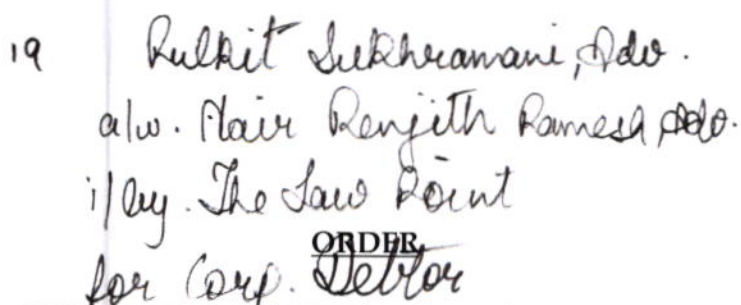 19 Pulkit Sukhramani, Adv.
a/w. Nair Renjith Ramesh, Adv.
i/by. The Law Point
ORDER
for Corp. Debtor